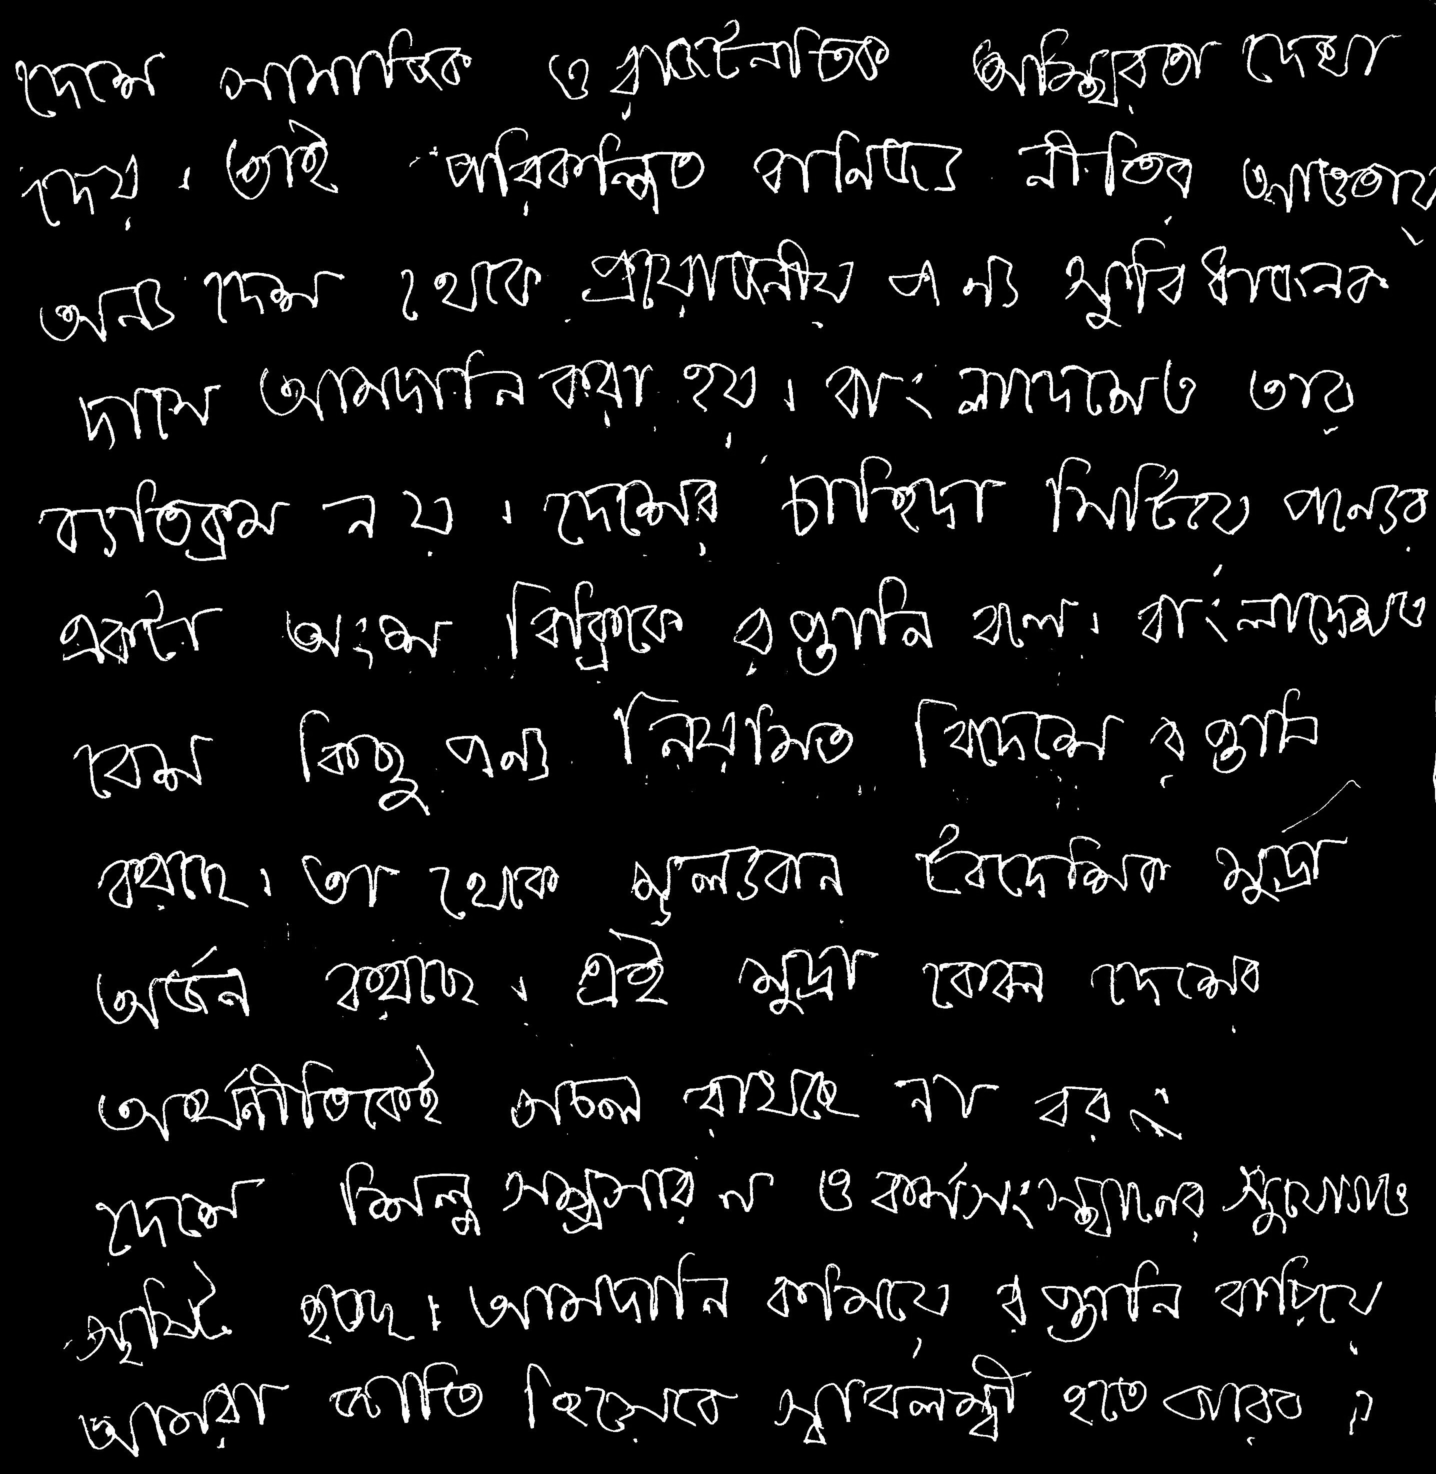 দেশে সামাজিক ও রাজনৈতিক অস্থিরতা দেখা
দেয়। তাই পরিকল্পিত বানিজ্য নীতির আওতায়
অন্য দেশ থেকে প্রয়োজনীয় পন্য সুবিধাজনক
দামে আমদানি করা হয়। বাংলাদেশেও তার
ব্যতিক্রম নয়। দেশের চাহিদা মিটিয়ে পন্যের
একটা অংশ বিক্রিকে রপ্তানি বলে। বাংলাদেশও
বেশ কিছু পন্য নিয়মিত বিদেশে রপ্তানি
করছে। তা থেকে মূল্যবান বৈদেশিক মুদ্রা
অর্জন করছে। এই মুদ্রা কেবল দেশের
অর্থনীতিকেই সচল রাখছে না বরং
দেশে শিল্প সম্প্রসারন ও কর্মসংস্থানের সুযোগও
সৃষ্টি হচ্ছে। আমদানি কমিয়ে রপ্তানি বাড়িয়ে
আমরা জাতি হিসেবে স্বাবলম্বী হতে পারব।